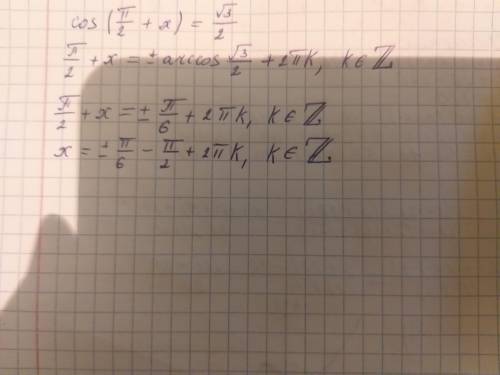 cos(π/2 + x) = √3/2
π/2 + x = ± arccos √3/2 + 2πk, k ∈ ℤ
π/2 + x = ± π/6 + 2πk, k ∈ ℤ
x = ± π/6 − π/2 + 2πk, k ∈ ℤ